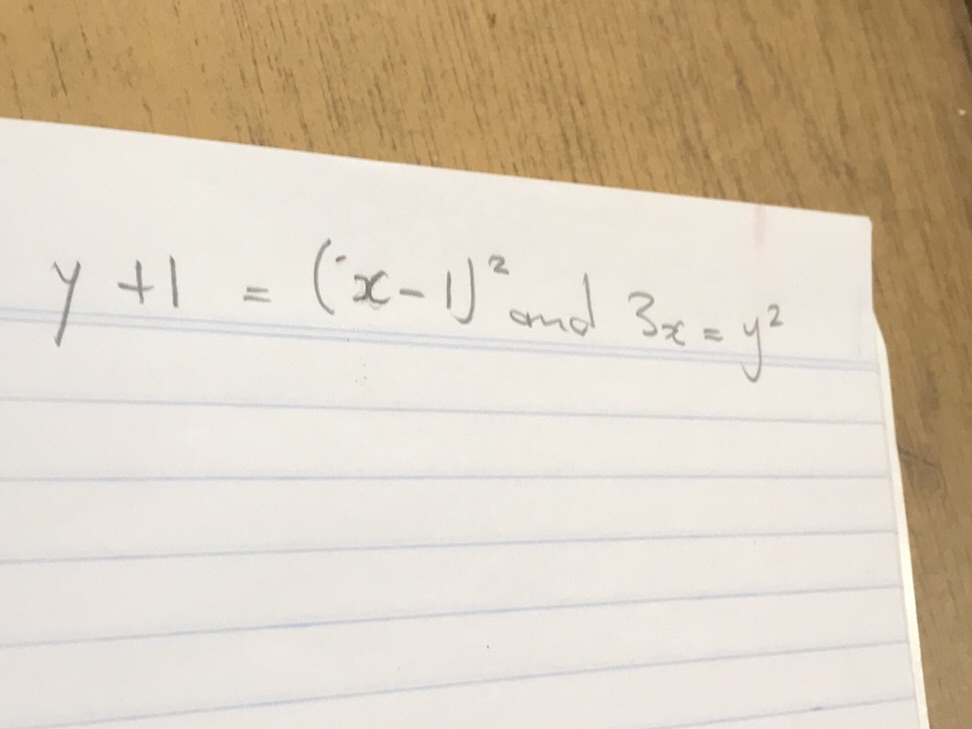 y + 1 = (x - 1)² and 3x = y²